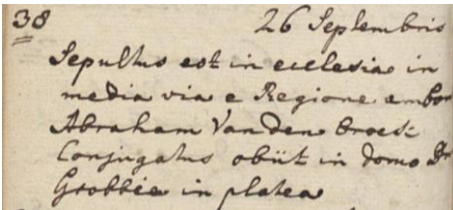 38 26 Septembris
Sepultus est in ecclesia in
media via e Regione ambon
Abraham Vanden broeck
Conjugatus obiit in domo Dni
Grobbée in platea